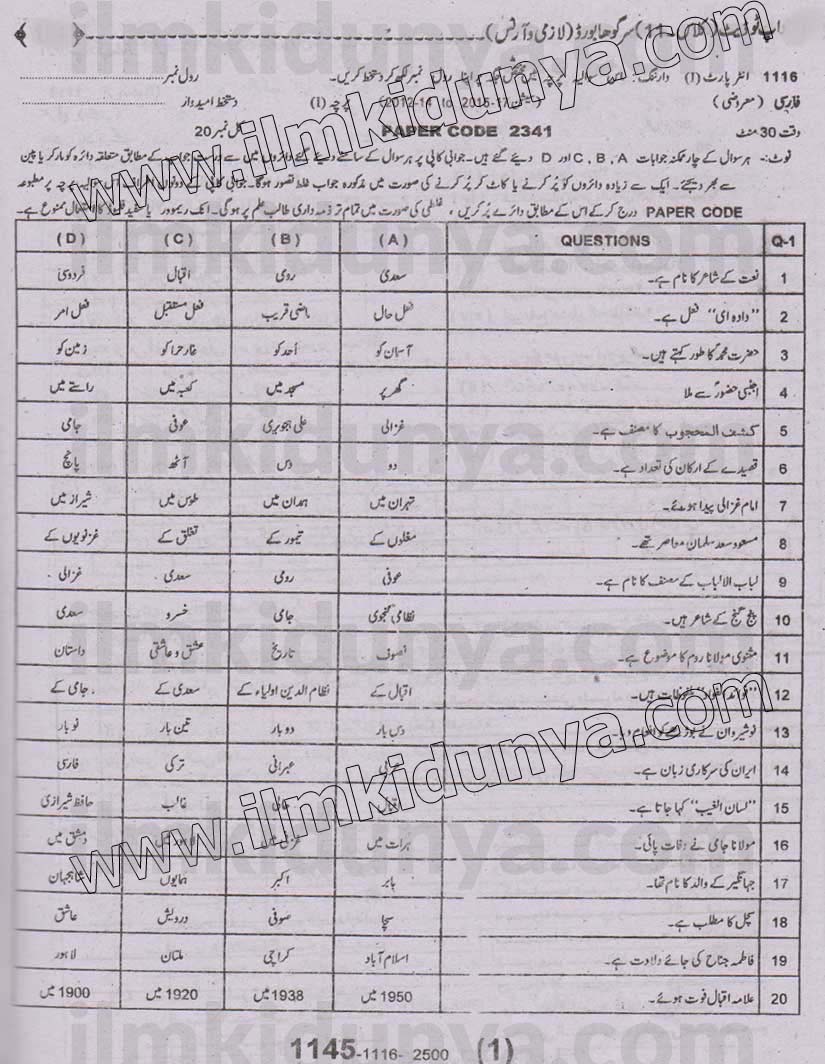 اپ ٹو ڈیٹ (کلاس 11) سرگودھا بورڈ (لازمی و آرٹس)
1116 انٹر پارٹ (I) وارننگ: اس سوالیہ پرچہ میں مختص جگہ پر اپنا رول نمبر لکھ کر دستخط کریں۔ رول نمبر
فارسی (معروضی) (سیشن 2015-17 to 2012-14) پرچہ (I) دستخط امیدوار
وقت 30 منٹ PAPER CODE 2341 کل نمبر 20
نوٹ:- ہر سوال کے چار ممکنہ جوابات C, B, A اور D دیئے گئے ہیں۔ جوابی کاپی پر ہر سوال کے سامنے دیئے گئے دائروں میں سے درست جواب کے مطابق متعلقہ دائرہ کو مارکر یا پین
سے بھر دیجئے۔ ایک سے زیادہ دائروں کو پُر کرنے یا کاٹ کر پُر کرنے کی صورت میں مذکورہ جواب غلط تصور ہوگا۔ جوابی کاپی کے دونوں پرچہ پر مطبوعہ
PAPER CODE درج کر کے اس کے مطابق دائرے پُر کریں، غلطی کی صورت میں تمام تر ذمہ داری طالب علم پر ہوگی۔ انک ریموور یا سفید فلوئڈ کا استعمال ممنوع ہے۔
Q-1 QUESTIONS (A) (B) (C) (D)
1 نعت کے شاعر کا نام ہے۔ سعدی رومی اقبال فردوسی
2 "دادہ ای" فعل ہے۔ فعل حال ماضی قریب فعل مستقبل فعل امر
3 حضرت محمدؐ کا طور کہتے ہیں۔ آسمان کو اُحد کو غار حرا کو زمین کو
4 اجنبی حضورؐ سے ملا گھر پر مسجد میں کعبہ میں راستے میں
5 کشف المحجوب کا مصنف ہے۔ غزالی علی ہجویری عوفی جامی
6 قصیدے کے ارکان کی تعداد ہے۔ دو دس آٹھ پانچ
7 امام غزالی پیدا ہوئے۔ تہران میں ہمدان میں طوس میں شیراز میں
8 مسعود سعد سلمان معاصر تھے۔ مغلوں کے تیمور کے تغلق کے غزنویوں کے
9 لباب الالباب کے مصنف کا نام ہے۔ عوفی رومی سعدی غزالی
10 پنج گنج کے شاعر ہیں۔ نظامی گنجوی جامی خسرو سعدی
11 مثنوی مولانا روم کا موضوع ہے۔ تصوف تاریخ عشق و عاشقی داستان
12 "فوائد الفواد" ملفوظات ہیں۔ اقبال کے نظام الدین اولیاء کے سعدی کے جامی کے
13 نوشیروان نے بوڑھے کو انعام دیا۔ دس بار دو بار تین بار نو بار
14 ایران کی سرکاری زبان ہے۔ عبرانی ترکی فارسی
15 "لسان الغیب" کہا جاتا ہے۔ اقبال حالی غالب حافظ شیرازی
16 مولانا جامی نے وفات پائی۔ ہرات میں غزنی میں لاہور میں دمشق میں
17 جہانگیر کے والد کا نام تھا۔ بابر اکبر ہمایوں شاہجہان
18 سچل کا مطلب ہے۔ سچا صوفی درویش عاشق
19 فاطمہ جناح کی جائے ولادت ہے۔ اسلام آباد کراچی ملتان لاہور
20 علامہ اقبال فوت ہوئے۔ 1950 میں 1938 میں 1920 میں 1900 میں
1145-1116- 2500 (1)
www.ilmkidunya.com
www.ilmkidunya.com
ilmkidunya.com
ilmkidunya.com
ilmkidunya.com
ilmkidunya.com
ilmkidunya.com